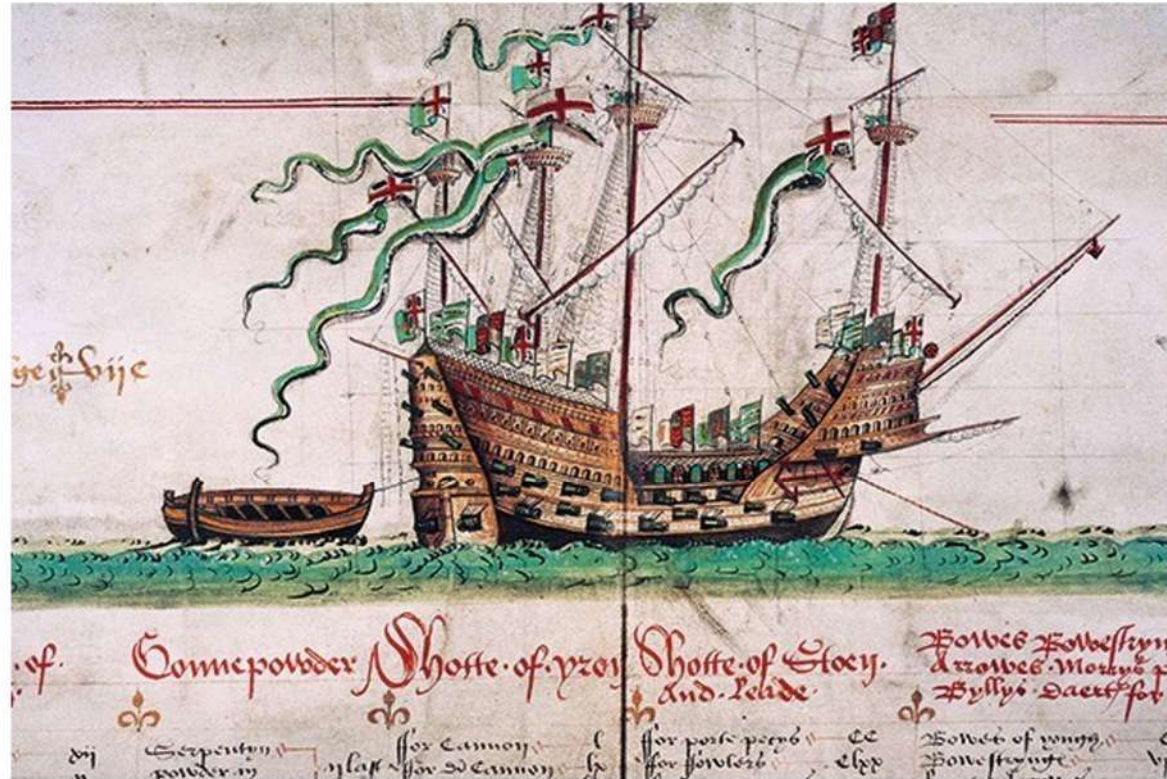 ge Vijc
of.
Gonnepowder
Shotte·of·yron
Shotte·of·Stoen·
And·Leade·
Bowes Bowestryn
Arrowes·Morrys p
Byllys·Daerts for
xij
Serpentyn
powder in
ij last
ffor Cannon l
ffor di Cannon lx
ffor porte pecys CC
ffor ffowlers Clxx
Bowes of yough
Bowestrynge